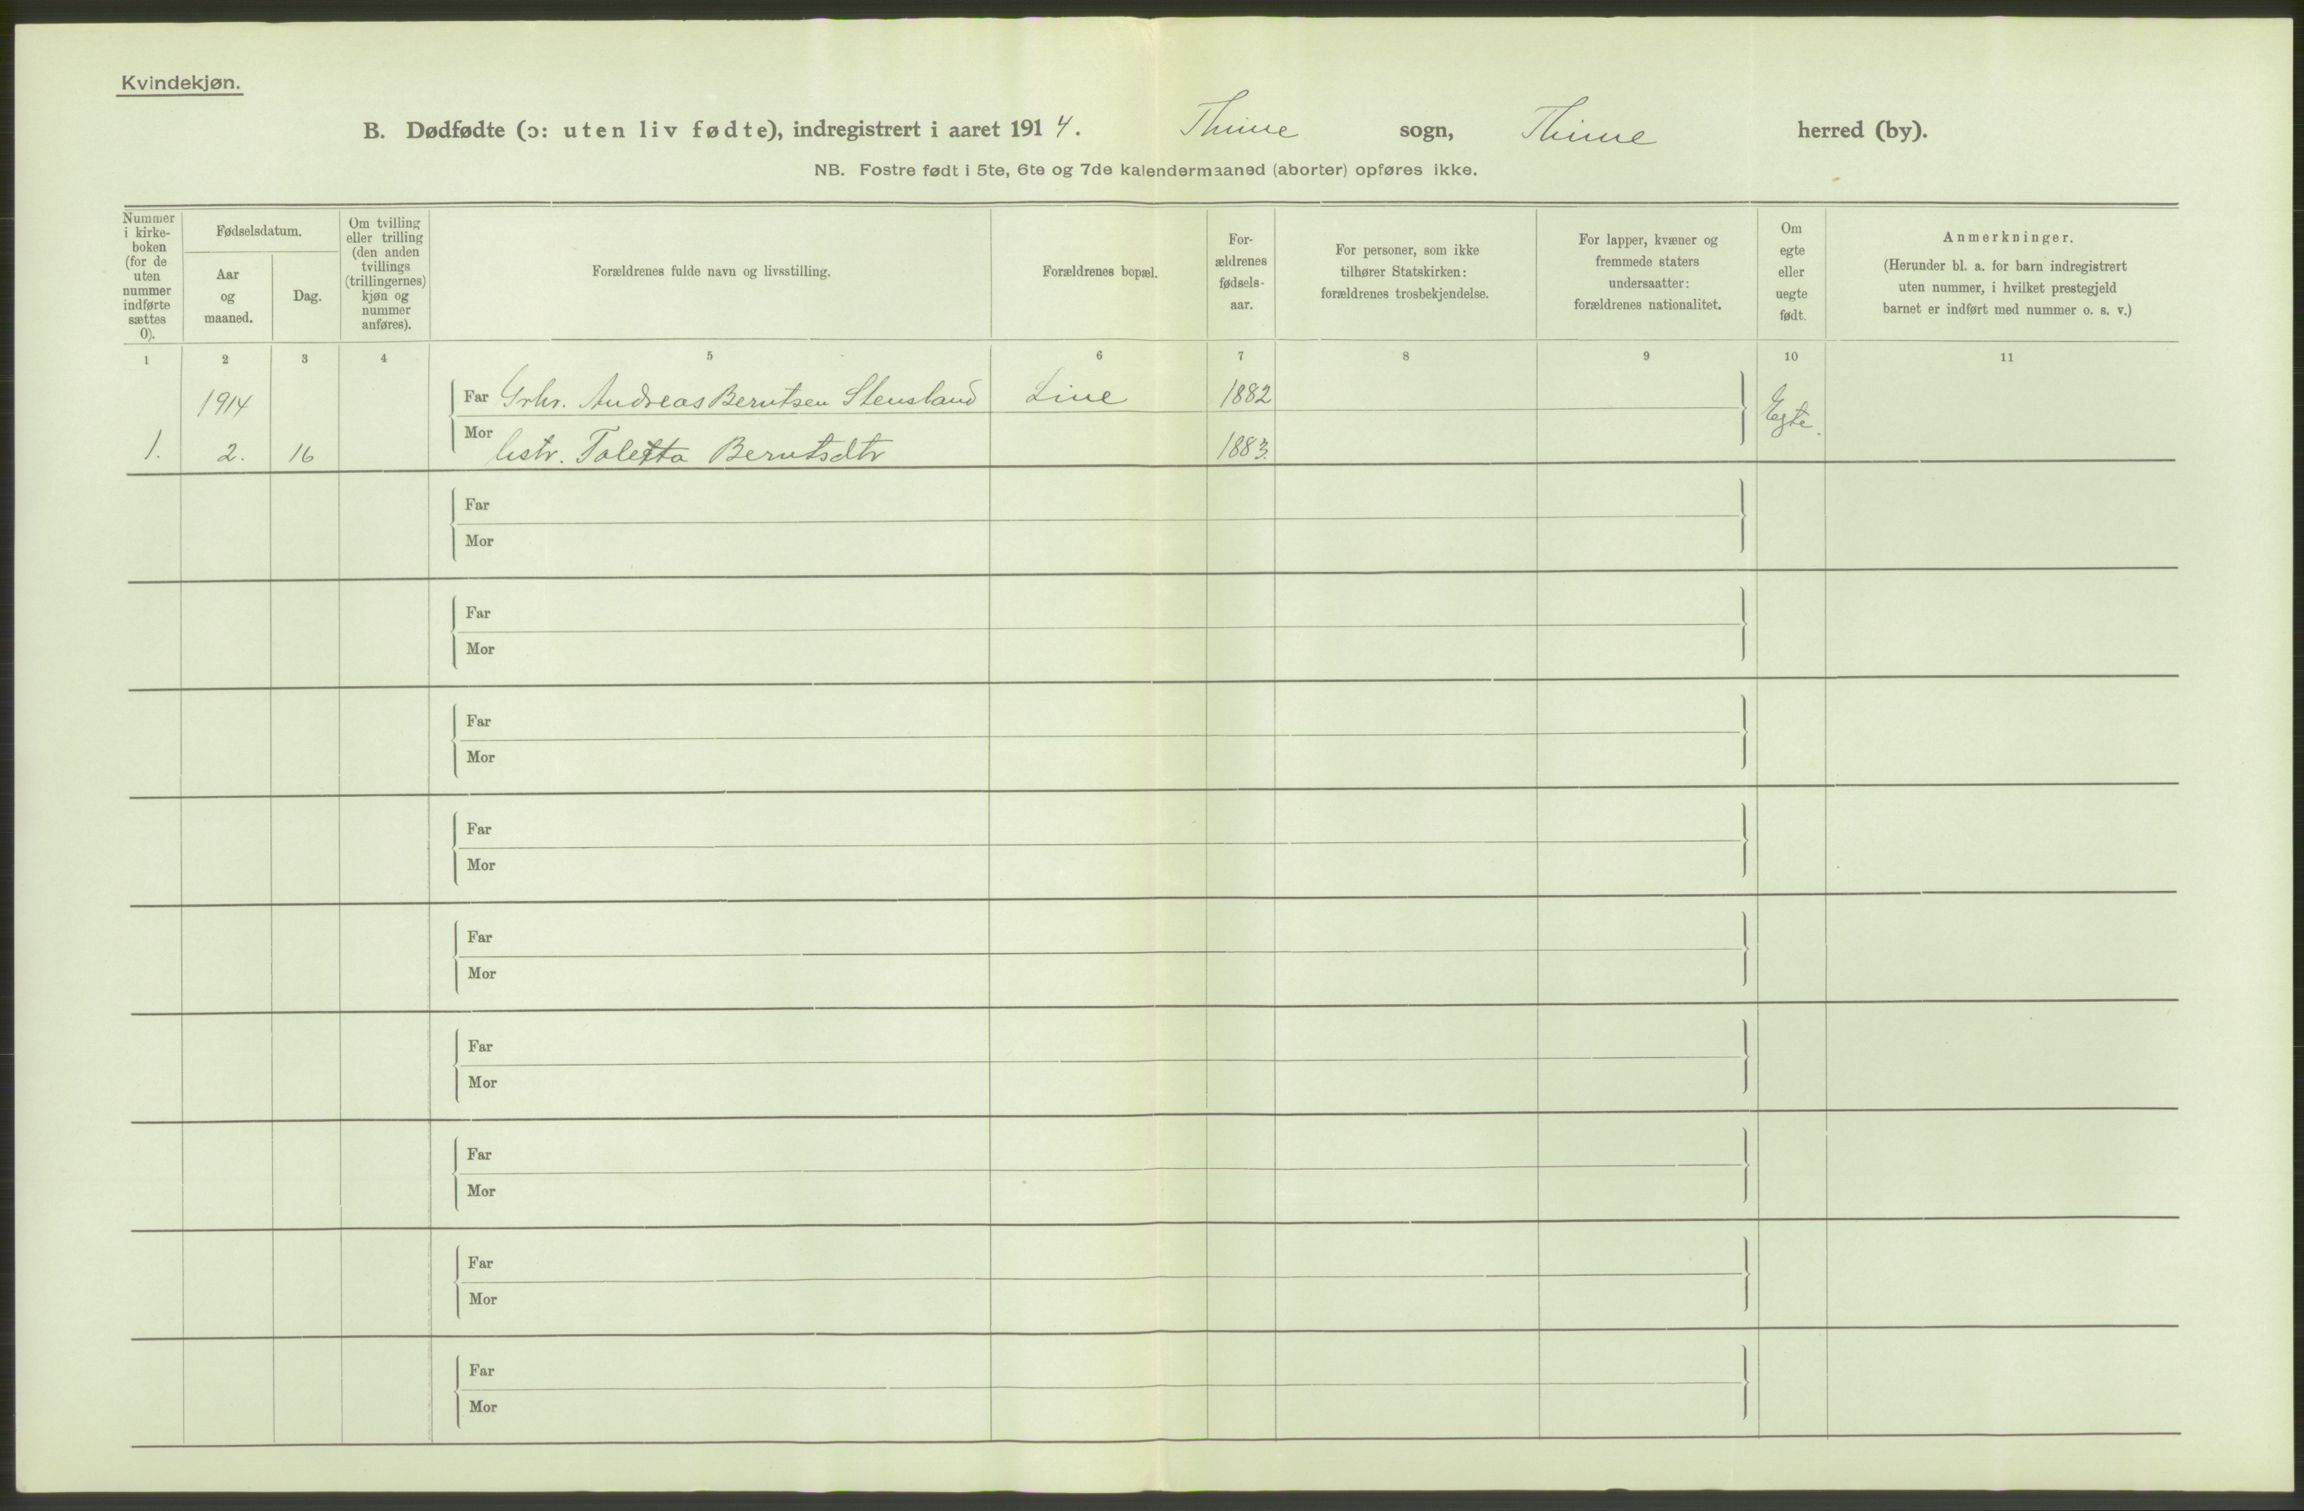 Kvindekjøn.
B. Dødfødte (ɔ: uten liv fødte), indregistrert i aaret 1914. Thime sogn, Thime herred (by).
NB. Fostre født i 5te, 6te og 7de kalendermaaned (aborter) opføres ikke.
Nummer
i kirke-
boken
(for de
uten
nummer
indførte
sættes
0).
Fødselsdatum.
Aar
og
maaned.
Dag.
Om tvilling
eller trilling
(den anden
tvillings
(trillingernes)
kjøn og
nummer
anføres).
Forældrenes fulde navn og livsstilling.
Forældrenes bopæl.
For-
ældrenes
fødsels-
aar.
For personer, som ikke
tilhører Statskirken:
forældrenes trosbekjendelse.
For lapper, kvæner og
fremmede staters
undersaatter:
forældrenes nationalitet.
Om
egte
eller
uegte
født.
Anmerkninger.
(Herunder bl. a. for barn indregistrert
uten nummer, i hvilket prestegjeld
barnet er indført med nummer o. s. v.)
1 2 3 4 5 6 7 8 9 10 11
1914 Far Grbr. Andreas Berntsen Stensland Line 1882 Egte.
1. 2. 16 Mor Hstr. Taletta Berntsdtr 1883.
Far
Mor
Far
Mor
Far
Mor
Far
Mor
Far
Mor
Far
Mor
Far
Mor
Far
Mor
Far
Mor